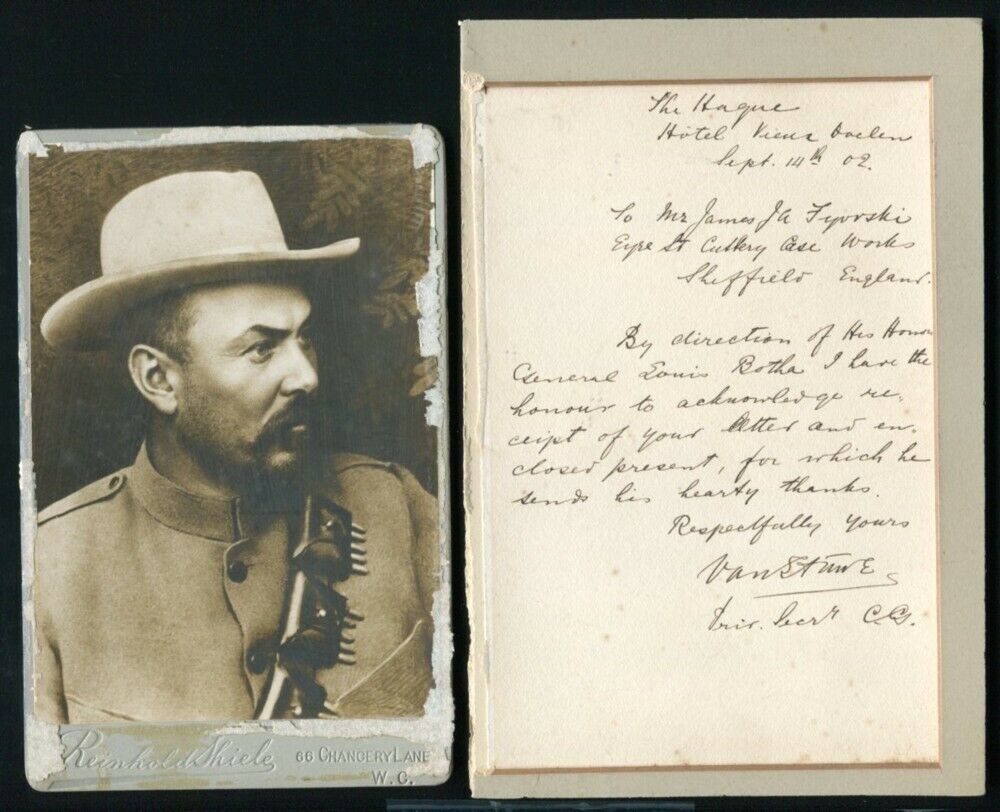 Reinhold Thiele
66 CHANCERY LANE
W.C.
The Hague
Hôtel Vieux Doelen
Sept. 14th 02.
To Mr James JA
Eyre St Cutlery Case Works
Sheffield England.
By direction of His Honour
General Louis Botha I have the
honour to acknowledge re-
ceipt of your letter and en-
closed present, for which he
sends his hearty thanks.
Respectfully yours
Priv. Secry C.G.